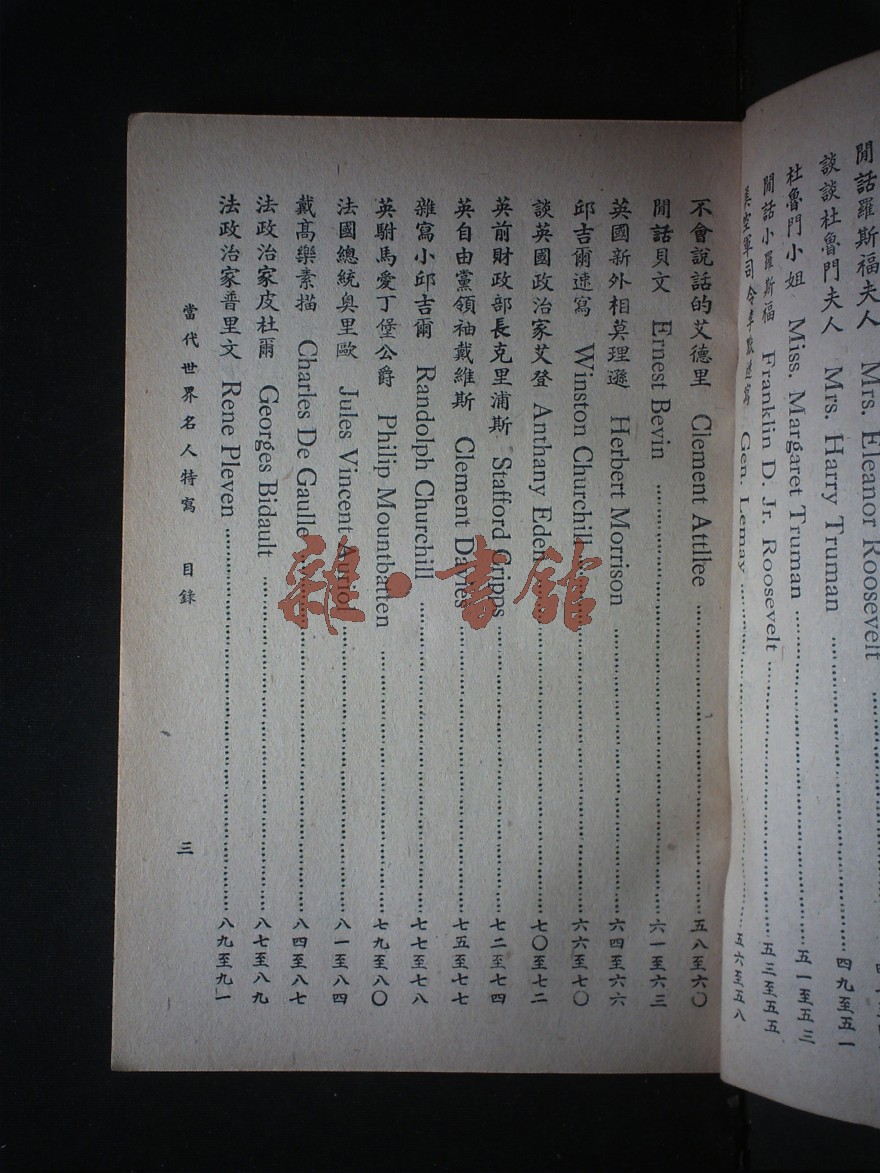 閒話羅斯福夫人 Mrs. Eleanor Roosevelt
談談杜魯門夫人 Mrs. Harry Truman 四九至五一
杜魯門小姐 Miss. Margaret Truman 五一至五三
閒話小羅斯福 Franklin D. Jr. Roosevelt 五三至五五
美空軍司令李默速寫 Gen. Lemay 五六至五八
不會說話的艾德里 Clement Attllee 五八至六〇
閒話貝文 Ernest Bevin 六一至六三
英國新外相莫理遜 Herbert Morrison 六四至六六
邱吉爾速寫 Winston Churchill 六六至七〇
談英國政治家艾登 Anthany Eden 七〇至七二
英前財政部長克里浦斯 Stafford Cripps 七二至七四
英自由黨領袖戴維斯 Clement Davies 七五至七七
雜寫小邱吉爾 Randolph Churchill 七七至七八
英駙馬愛丁堡公爵 Philip Mountbatten 七九至八〇
法國總統奥里歐 Jules Vincent Auriol 八一至八四
戴高樂素描 Charles De Gaulle 八四至八七
法政治家皮杜爾 Georges Bidault 八七至八九
法政治家普里文 Rene Pleven 八九至九一
當代世界名人特寫 目錄 三
雜·書館